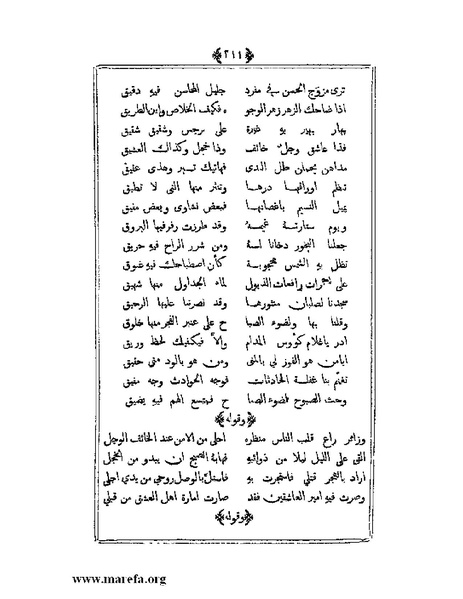 ﴿٢١١﴾
ترى مزوج الحسن في مفرد جليل المحاسن فيه دقيق
اذا ضاحك الزهر زهر الوجو ه فكيف الخلاص واين الطريق
بهار بهر به غيرة على نرجس وشقيق شقيق
فذا عاشق وجل خائف وذا خجل وكذاك العشيق
مداهن يحملن طل الندى فهاتيك تبر وهذى عقيق
تنظم اوراقها درها وتنثر منها التي لا تطيق
يميل النسيم باغصانها فبعض نشاوى وبعض مفيق
ويوم ستارته غيمه وقد طرزت رفرفيها البروق
جعلنا البخور دخانا له ومن شرر الراح فيه حريق
تظل به الشمس محجوبة كأن اصطباحك فيه غبوق
على شجرات رافعات الذيول لماء الجداول منها شهيق
سجدنا لصلبان منثورها وقد نصرتنا عليها الرحيق
وقلنا بها ولضوء الصبا ح على عنبر الفجر منها خلوق
ادر ياغلام كؤوس المدام والا فيكفيك لحظ وريق
ايامن هو الفوز لي بالمنى ومن هو بالود مني حقيق
تغنم بنا غفلة الحادثات فوجه الحوادث وجه صفيق
وحث الصبوح لضوء الصبا ح فمتسع الهم فيه يضيق
﴿وقوله﴾
وزائر راع قلب الناس منظره احلى من الامن عند الخائف الوجل
القى على الليل ليلا من ذوائبه فهابه الصبح ان يبدو من الخجل
اراد بالهجر قتلي فاستجرت به فاستل بالوصل روحي من يدي اجلي
وصرت فيه امير العاشقين فقد صارت امارة اهل العشق من قبلي
﴿وقوله﴾
www.marefa.org